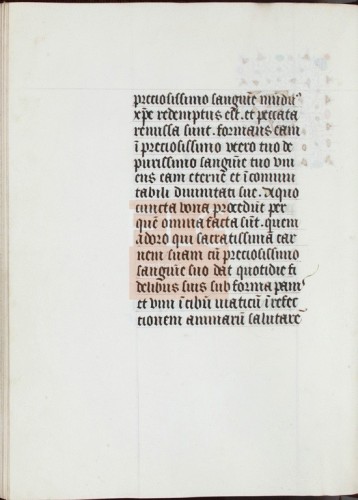 preciosissimo sanguīe mūdus
xp̄e redemptus est. et peccata
remissa sunt. formans eam
ī preciosissimo utero tuo de
purissimo sanguīe tuo viu
ens eam eterne et īcommu
tabili diuinitati sue. A quo
cuncta bona procedūt per
quē omnia facta sūt. quem
adoro qui sacratissima car
nem suam cū preciosissimo
sanguīe suo dat quotidie fi
delibus suis sub forma panis
et vini ī cibū viaticū ī refec
tionem animarū salutarē